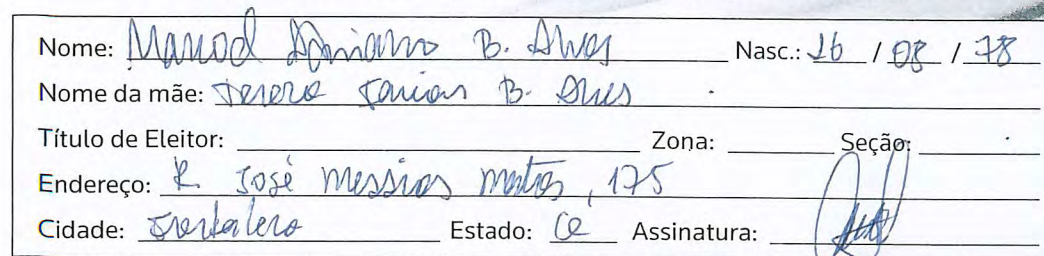 Nome: Manoel Adriano B. Alves Nasc.: 16 / 08 / 78
Nome da mãe: Farias B. Alves
Título de Eleitor: Zona: Seção:
Endereço: R. José Messias Matos, 175
Cidade: Estado: Ce Assinatura: